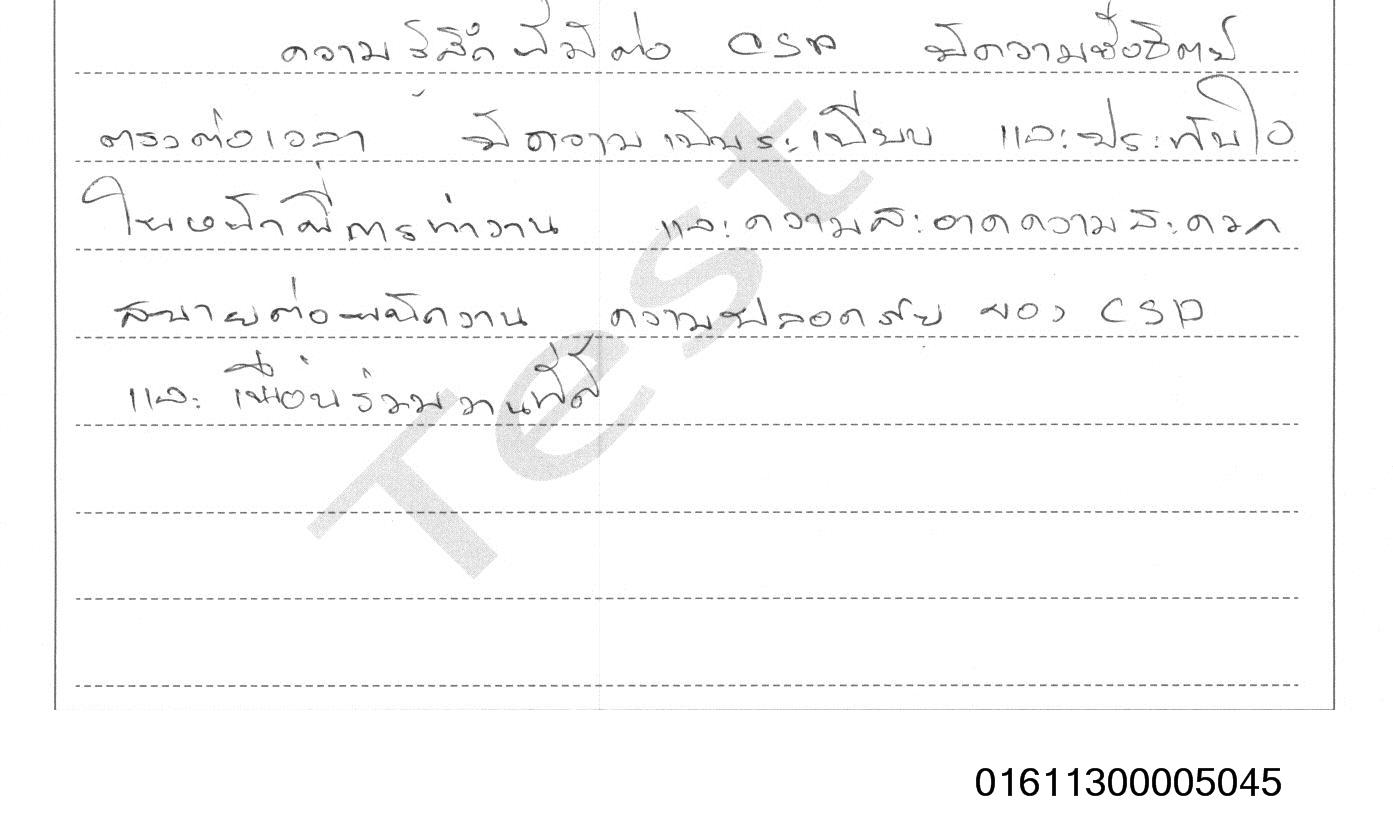 ความรู้สึกที่มีต่อ CSP มีความซื่อสัตย์
ตรงต่อเวลา มีความเป็นระเบียบ และประทับใจ
ในหน้าที่การทำงาน และความสะอาดความสะดวก
สบายต่อพนักงาน ความปลอดภัย ของ CSP
และ เพื่อนร่วมงานที่ดี
Test
01611300005045